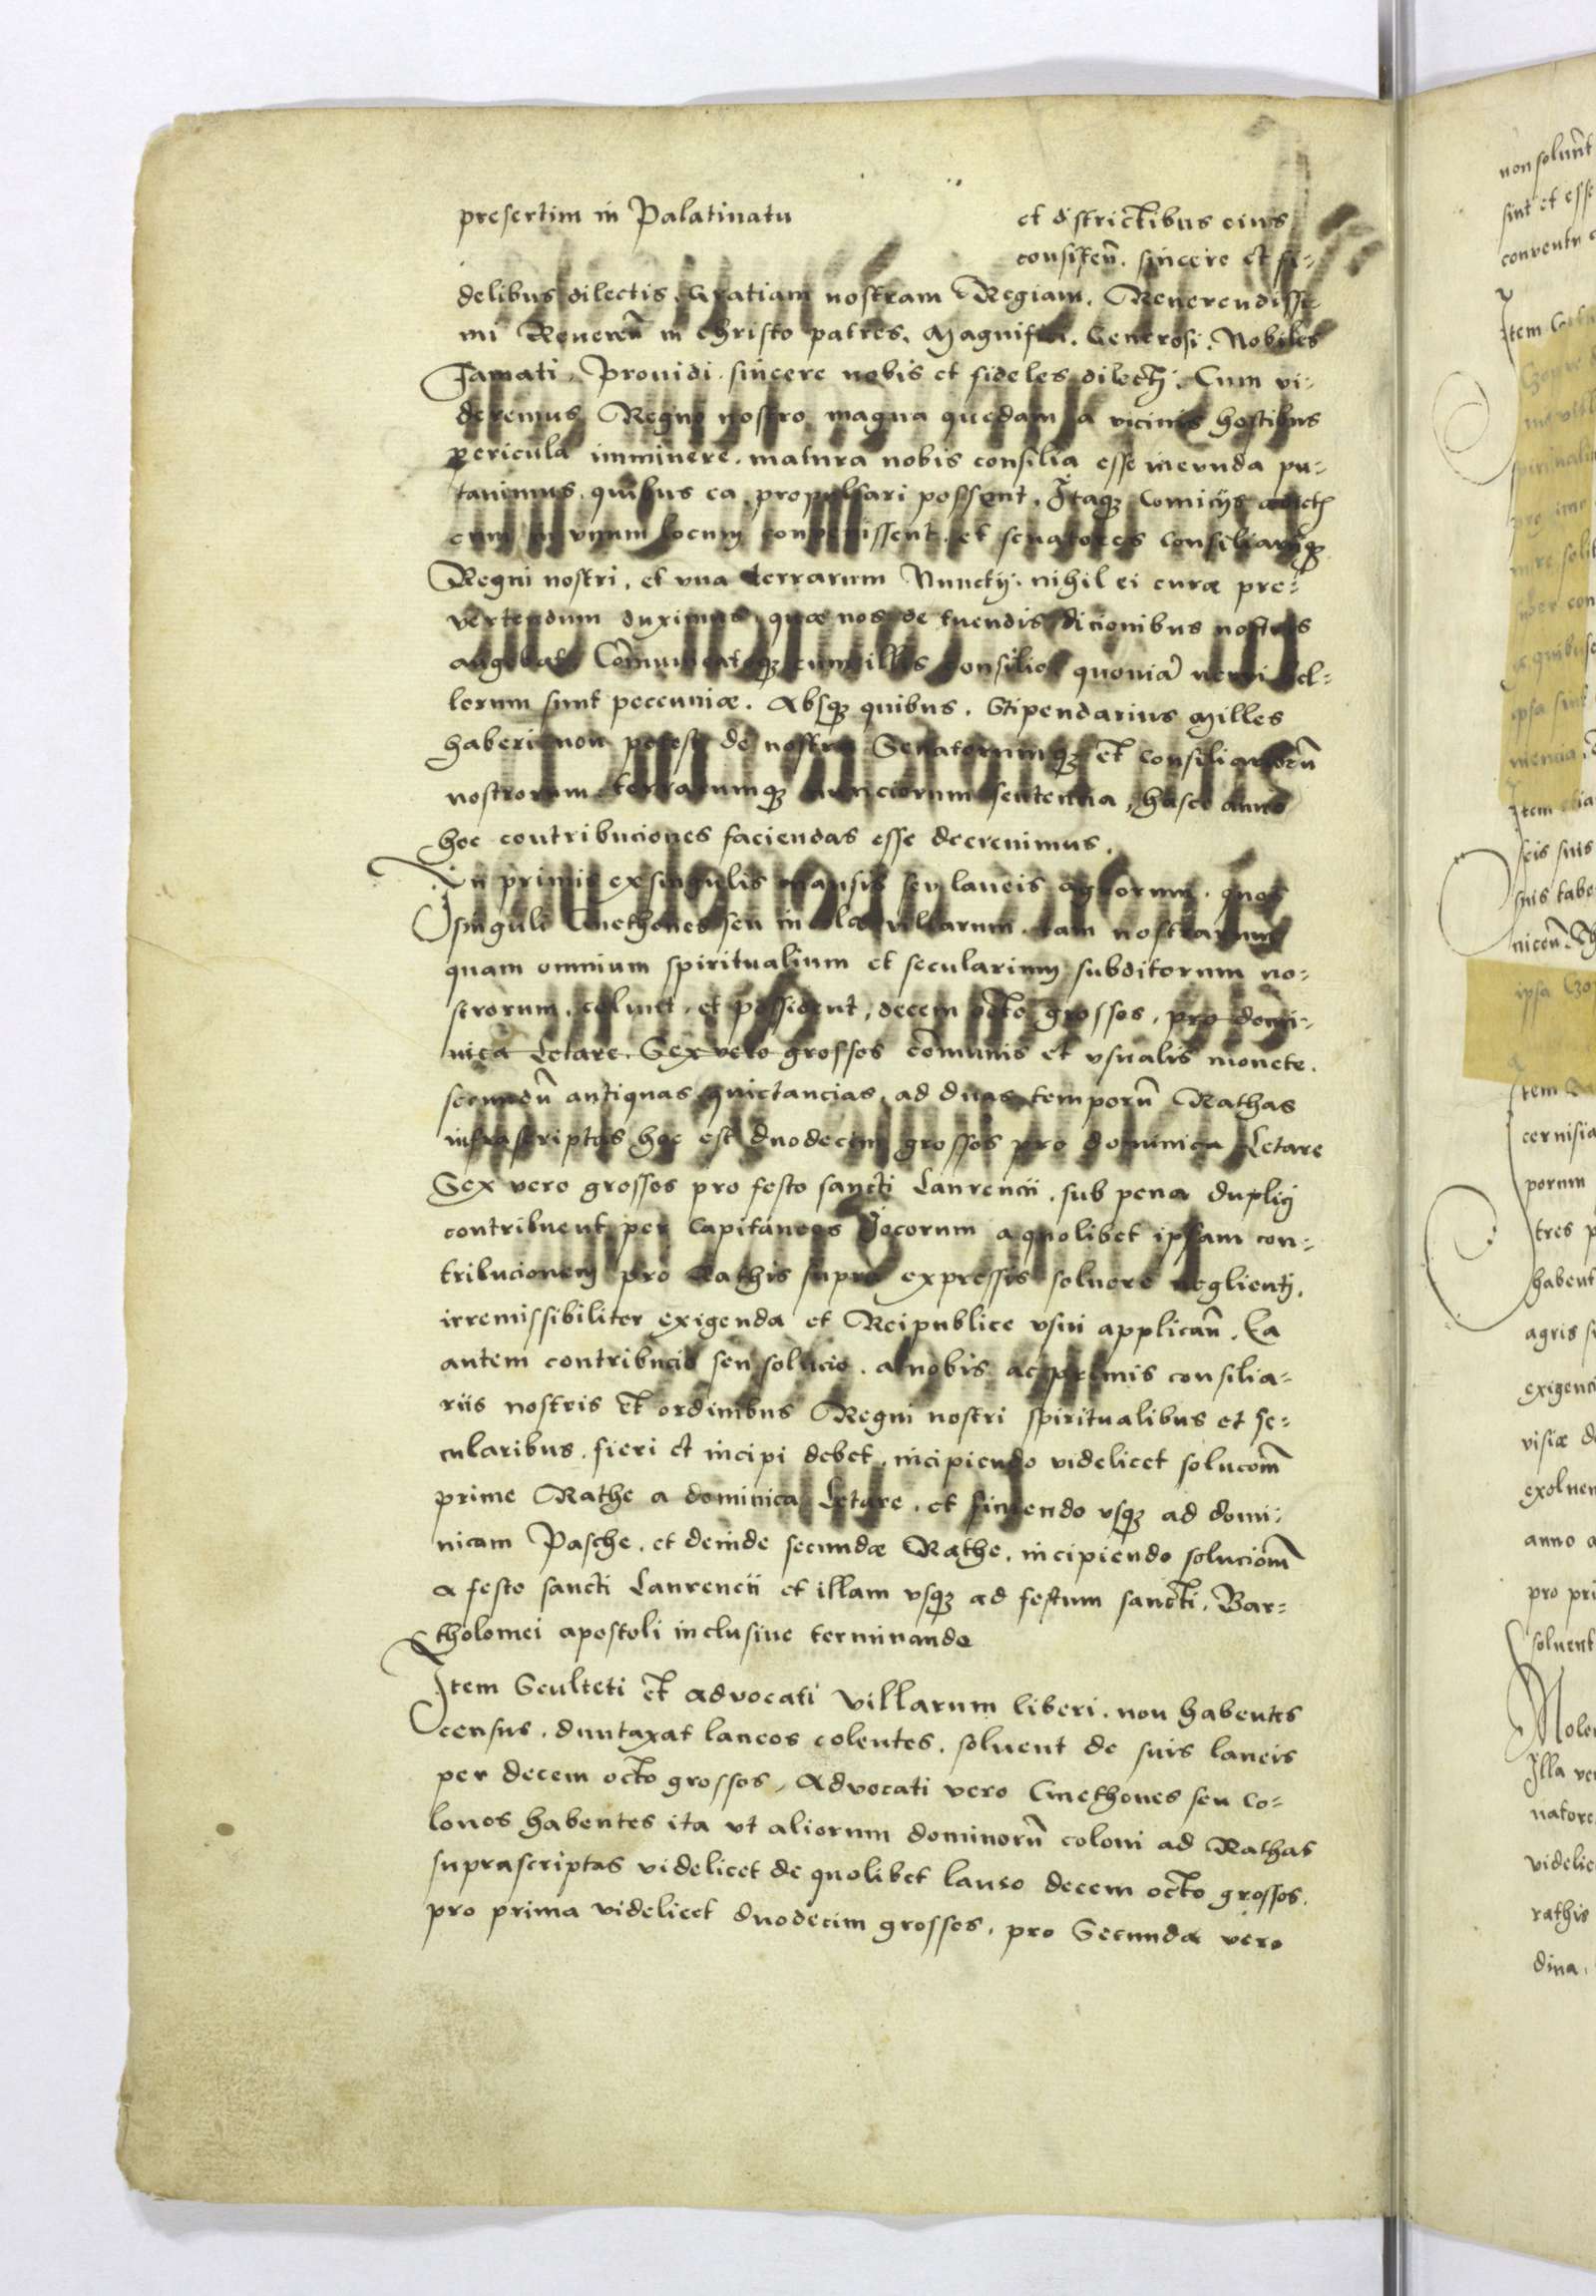 presertim in Palatinatu et districtibus eius
consisteñ. sincere et fi-
delibus dilectis. Gratiam nostram Regiam. Reuerendissi-
mi Reuereñ in christo patres. Magnifici. Generosi. Nobiles
Famati. Prouidi. sincere nobis et fideles dilecti. Cum vi-
deremus Regno nostro magna quedam a vicinis hostibus
pericula imminere. matura nobis consilia esse ineunda pu-
tauimus. quibus ea propulsari possent. Itaqz Comicijs
cum in vnum locum conuenissent. et senatores Consiliarijqz
Regni nostri, et vna terrarum Nunctij. nihil ei curæ pre-
vertendum duximus, quæ nos de tuendis dicionibus nostris
angebat. Com̃unicatoqz cum illis consilio quoniã nerui bel-
lorum sunt peccuniæ. Absqz quibus. Stipendarius Milles
haberi non potest de nostra Senatorumqz et consiliariorũ
nostrorum terrarumqz nunciorum sententia, hasce anno
hoc contribuciones faciendas esse decreuimus.
In primis ex singulis mansis seu laneis agrorum. quos
singuli Cmethones seu incolæ villarum. tam nostrarum
quam omnium spiritualium et secularium subditorum no-
strorum. colunt. et possident, decem octo grossos, pro domi-
nica Letare. Sex vero grossos com̃unis et vsualis monete.
secundũ antiquas quictancias, ad duas temporũ Rathas
infrascriptas hoc est duodecim grossos pro dominica Letare
Sex vero grossos pro festo sancti Laurencii. sub pena duplij
contribuent per Capitaneos locorum a quolibet ipsam con-
tribucionem pro Rathis supra expressis soluere neglienti,
irremissibiliter exigenda et Reipublice vsui applicañ. Ea
autem contribucio seu solucio. a nobis ac primis consilia-
riis nostris et ordinibus Regni nostri spiritualibus et se-
cularibus. fieri et incipi debet. incipiendo videlicet solucom̃
prime Rathe a dominica Letare. et finiendo vsqz ad domi-
nicam Pasche. et deinde secundæ Rathe. incipiendo soluciom̃
a festo sancti Laurencii et illam vsqz ad festum sancti. Bar-
tholomei apostoli inclusiue terminando
Item Sculteti et advocati villarum liberi. non habentes
census. duntaxat laneos colentes. soluent de suis laneis
per decem octo grossos, Advocati vero Cmethones seu co-
lonos habentes ita vt aliorum dominorũ coloni ad Rathas
suprascriptas videlicet de quolibet laneo decem octo grossos.
pro prima videlicet duodecim grossos, pro Secunda vero
non soluñt
sint et esse
conuentu
Item
seis suis
suis tabe
niceñ
ipsa
Item
cernisia
porum
tres
habent
agris
exigenci
visiæ
exoluen
anno
pro pri
soluent
Molen
Illa ve
natore
videlic
rathis
dina.